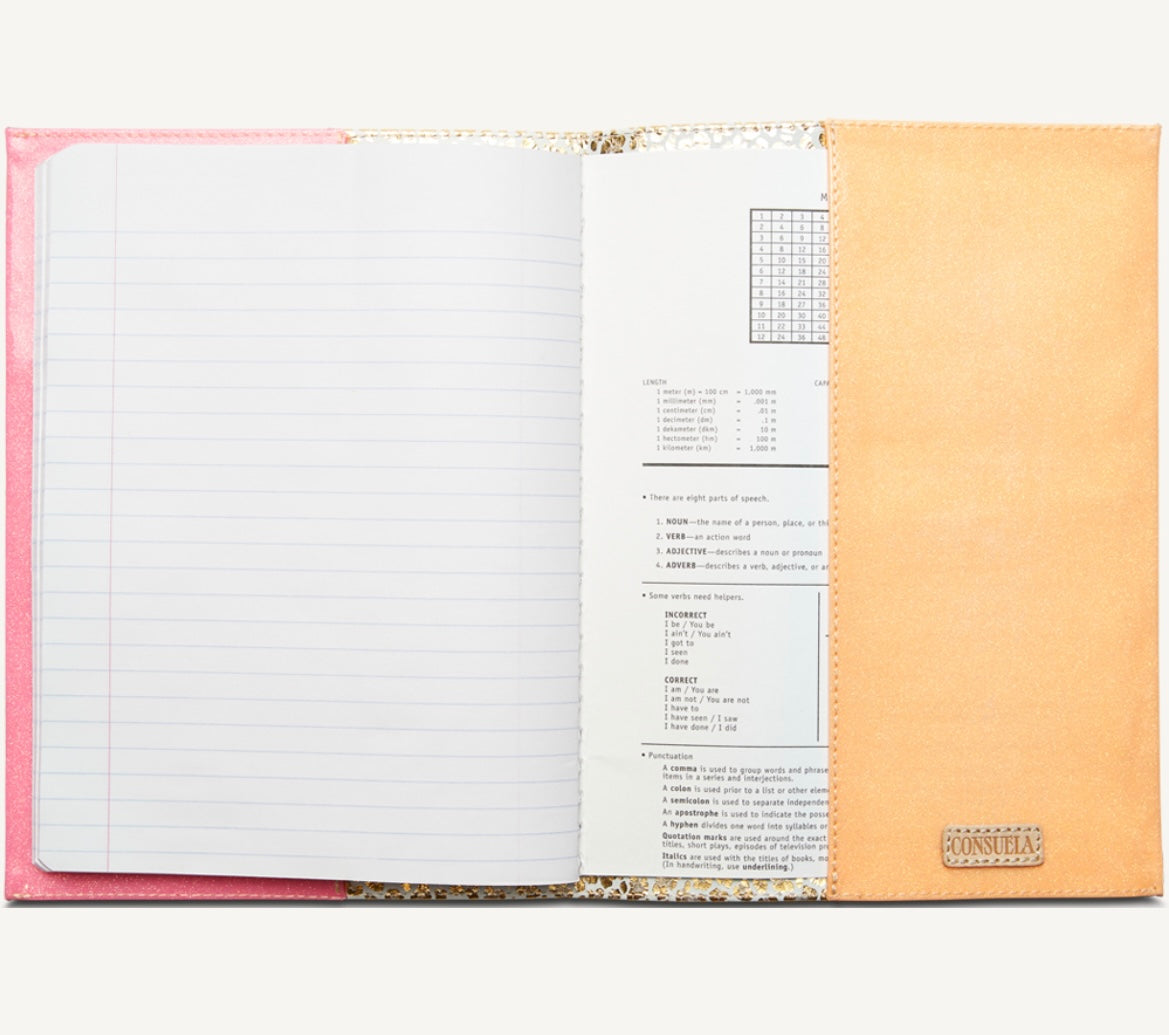 M
1 2 3 4
2 4 6 8
3 6 9 12
4 8 12 16
5 10 15 20
6 12 18 24
7 14 21 28
8 16 24 32
9 18 27 36
10 20 30 40
11 22 33 44
12 24 36 48
LENGTH
1 meter (m) = 100 cm = 1,000 mm
1 millimeter (mm) = .001 m
1 centimeter (cm) = .01 m
1 decimeter (dm) = .1 m
1 dekameter (dkm) = 10 m
1 hectometer (hm) = 100 m
1 kilometer (km) = 1,000 m
CAPA
• There are eight parts of speech.
1. NOUN—the name of a person, place, or thi
2. VERB—an action word
3. ADJECTIVE—describes a noun or pronoun
4. ADVERB—describes a verb, adjective, or an
• Some verbs need helpers.
INCORRECT
I be / You be
I ain't / You ain't
I got to
I seen
I done
CORRECT
I am / You are
I am not / You are not
I have to
I have seen / I saw
I have done / I did
• Punctuation
A comma is used to group words and phrase
items in a series and interjections.
A colon is used prior to a list or other elem
A semicolon is used to separate independen
An apostrophe is used to indicate the posse
A hyphen divides one word into syllables or
Quotation marks are used around the exact
titles, short plays, episodes of television pr
Italics are used with the titles of books, mo
(In handwriting, use underlining.)
CONSUELA